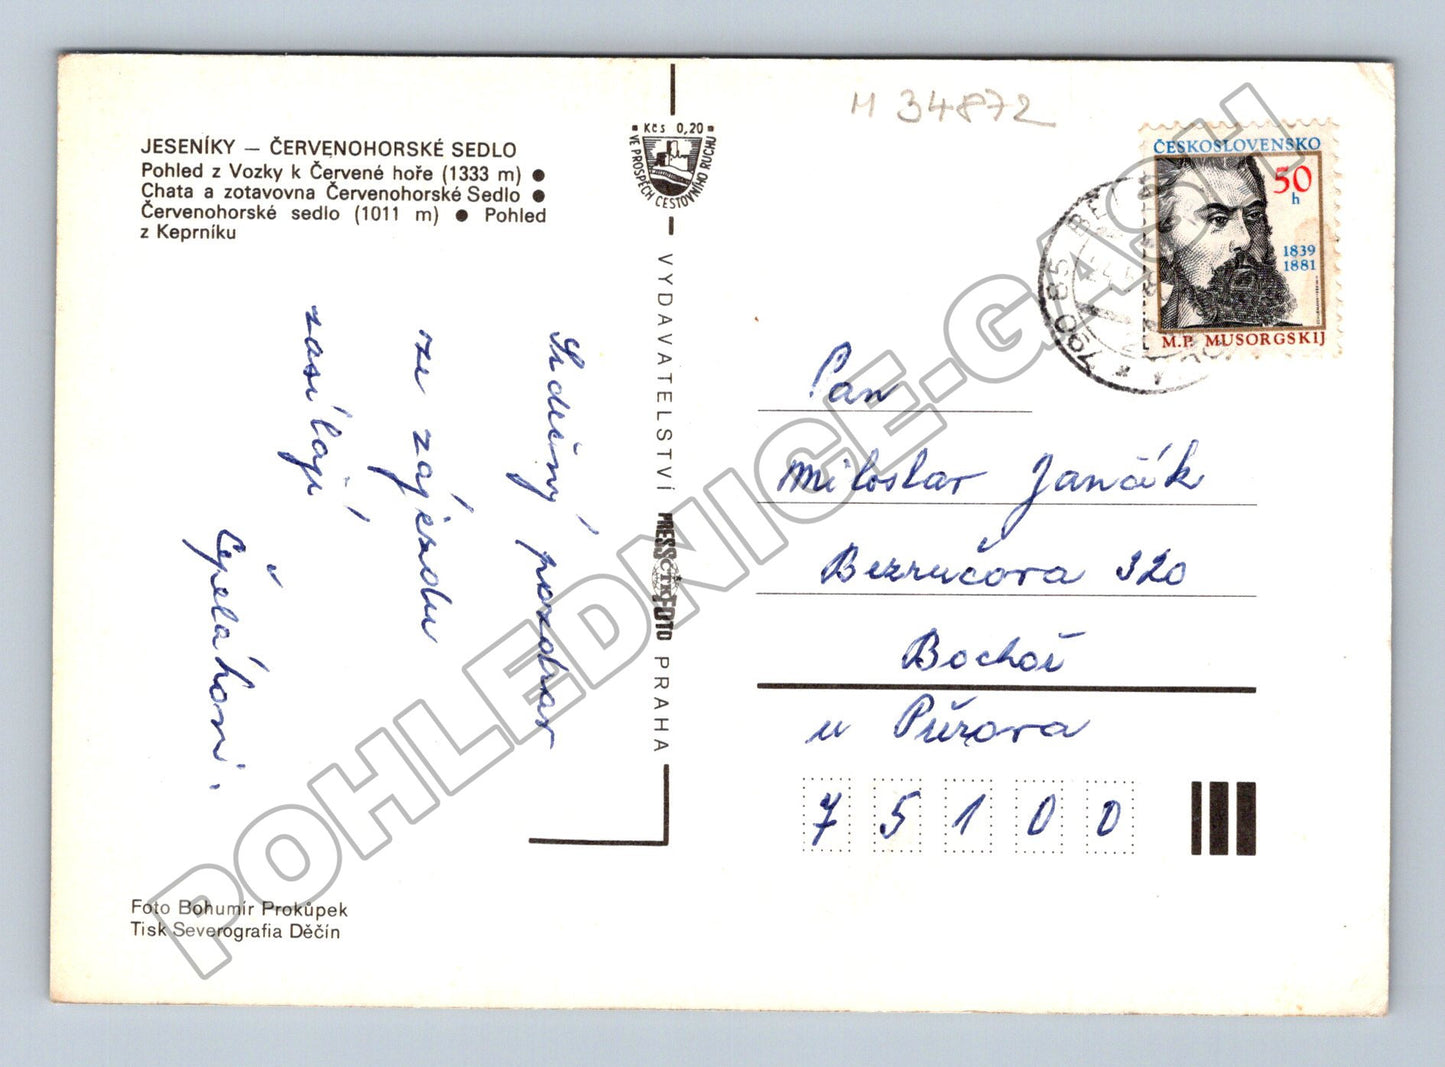 M 34872
JESENÍKY — ČERVENOHORSKÉ SEDLO
Pohled z Vozky k Červené hoře (1333 m) ●
Chata a zotavovna Červenohorské Sedlo ●
Červenohorské sedlo (1011 m) ● Pohled
z Keprníku
Kčs 0,20
VE PROSPĚCH CESTOVNÍHO RUCHU
VYDAVATELSTVÍ PRESSFOTO PRAHA
ČTK
ČESKOSLOVENSKO
50
h
1839
1881
M.P. MUSORGSKIJ
790 85
Srdečný pozdrav
ze zájezdu
zasílají
Čepelákovi.
Pan
Miloslav Jančík
Bezručova 320
Bochoř
u Přerova
75100
Foto Bohumír Prokůpek
Tisk Severografia Děčín
POHLEDNICE-GASH